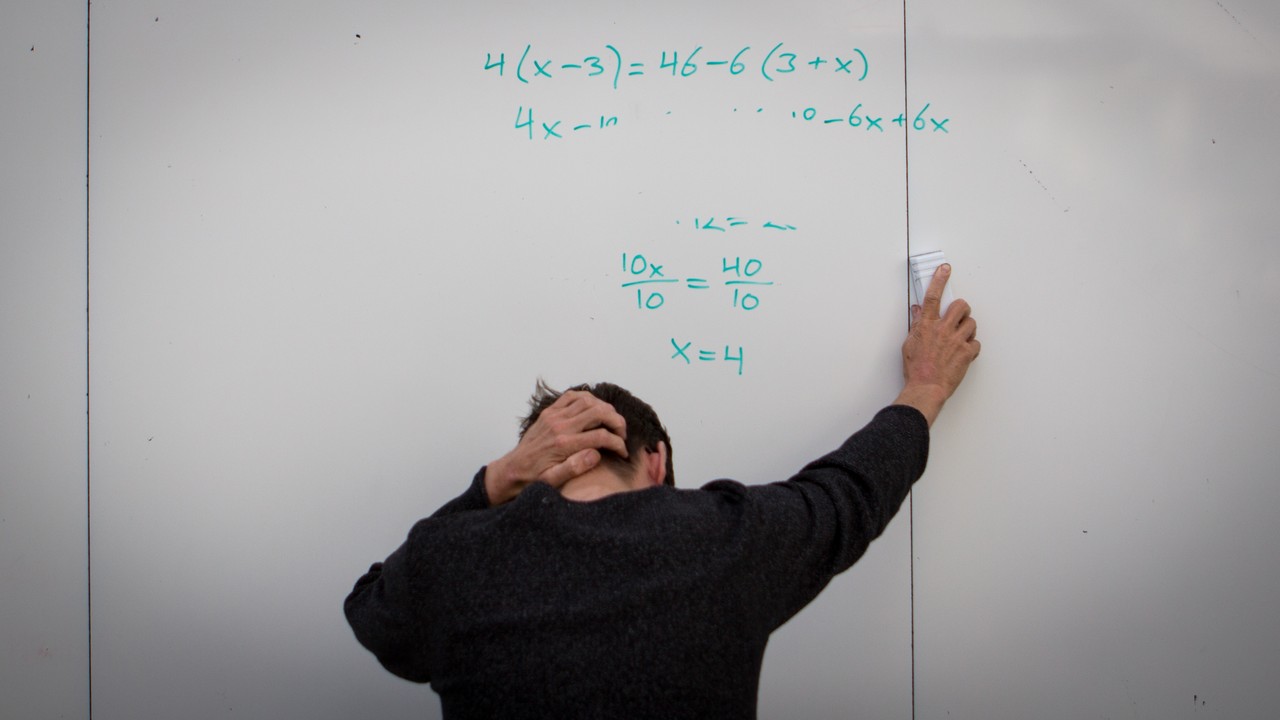 4(x-3)=46-6(3+x)
4x- -6x+6x
10x/10 = 40/10
x=4